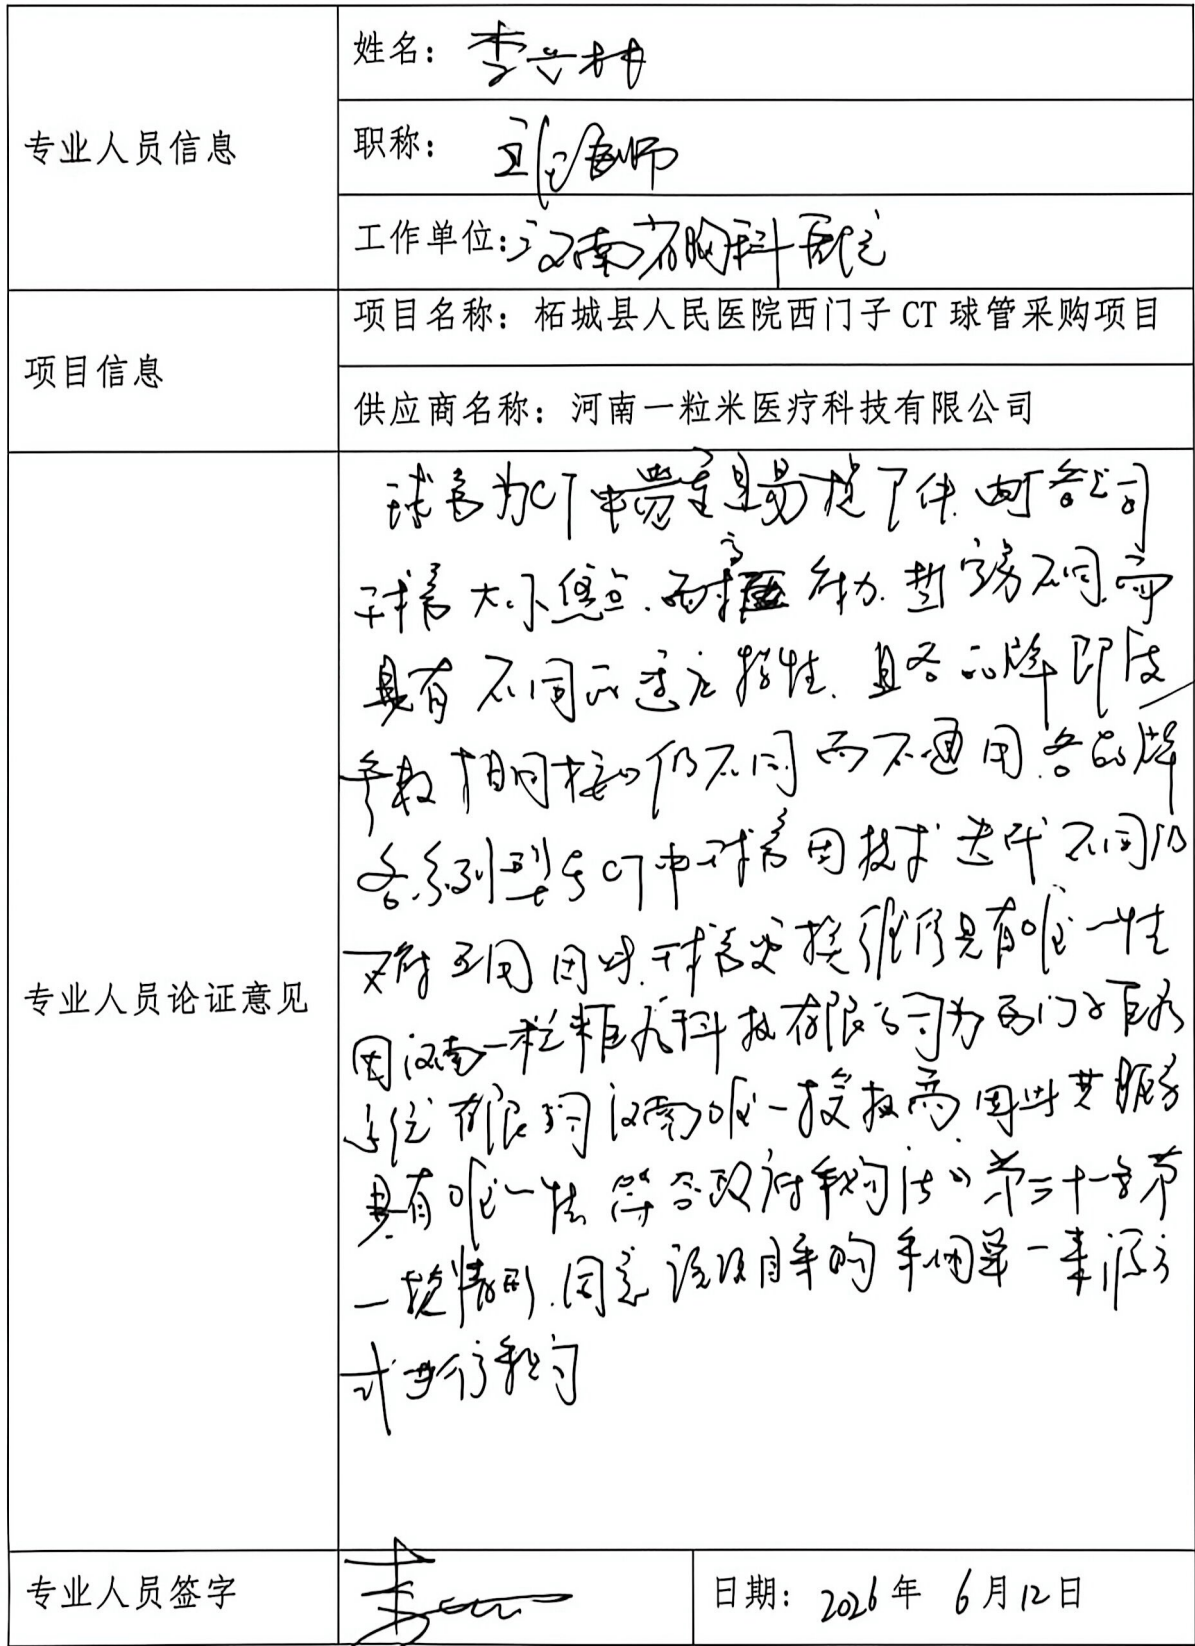 专业人员信息
姓名：李兴林
职称：主任医师
工作单位：河南省胸科医院
项目信息
项目名称：柘城县人民医院西门子CT球管采购项目
供应商名称：河南一粒米医疗科技有限公司
专业人员论证意见
球管为CT中 易损 件 各公司
球管大小 不同 而
具有不同的 特性 且各品牌即使
参数相同接口仍不同而不通用 各品牌
各系列型号CT中球管因技术迭代不同仍
互用 因此 球管更换维修具有唯一性
因河南一粒米医疗科技有限公司为西门子医疗
系统有限公司河南唯一授权商 因此其服务
具有唯一性 符合政府采购法 第三十一条第
一款情形 同意该项目采购采用单一来源方
式进行采购
专业人员签字
日期：2026年6月12日